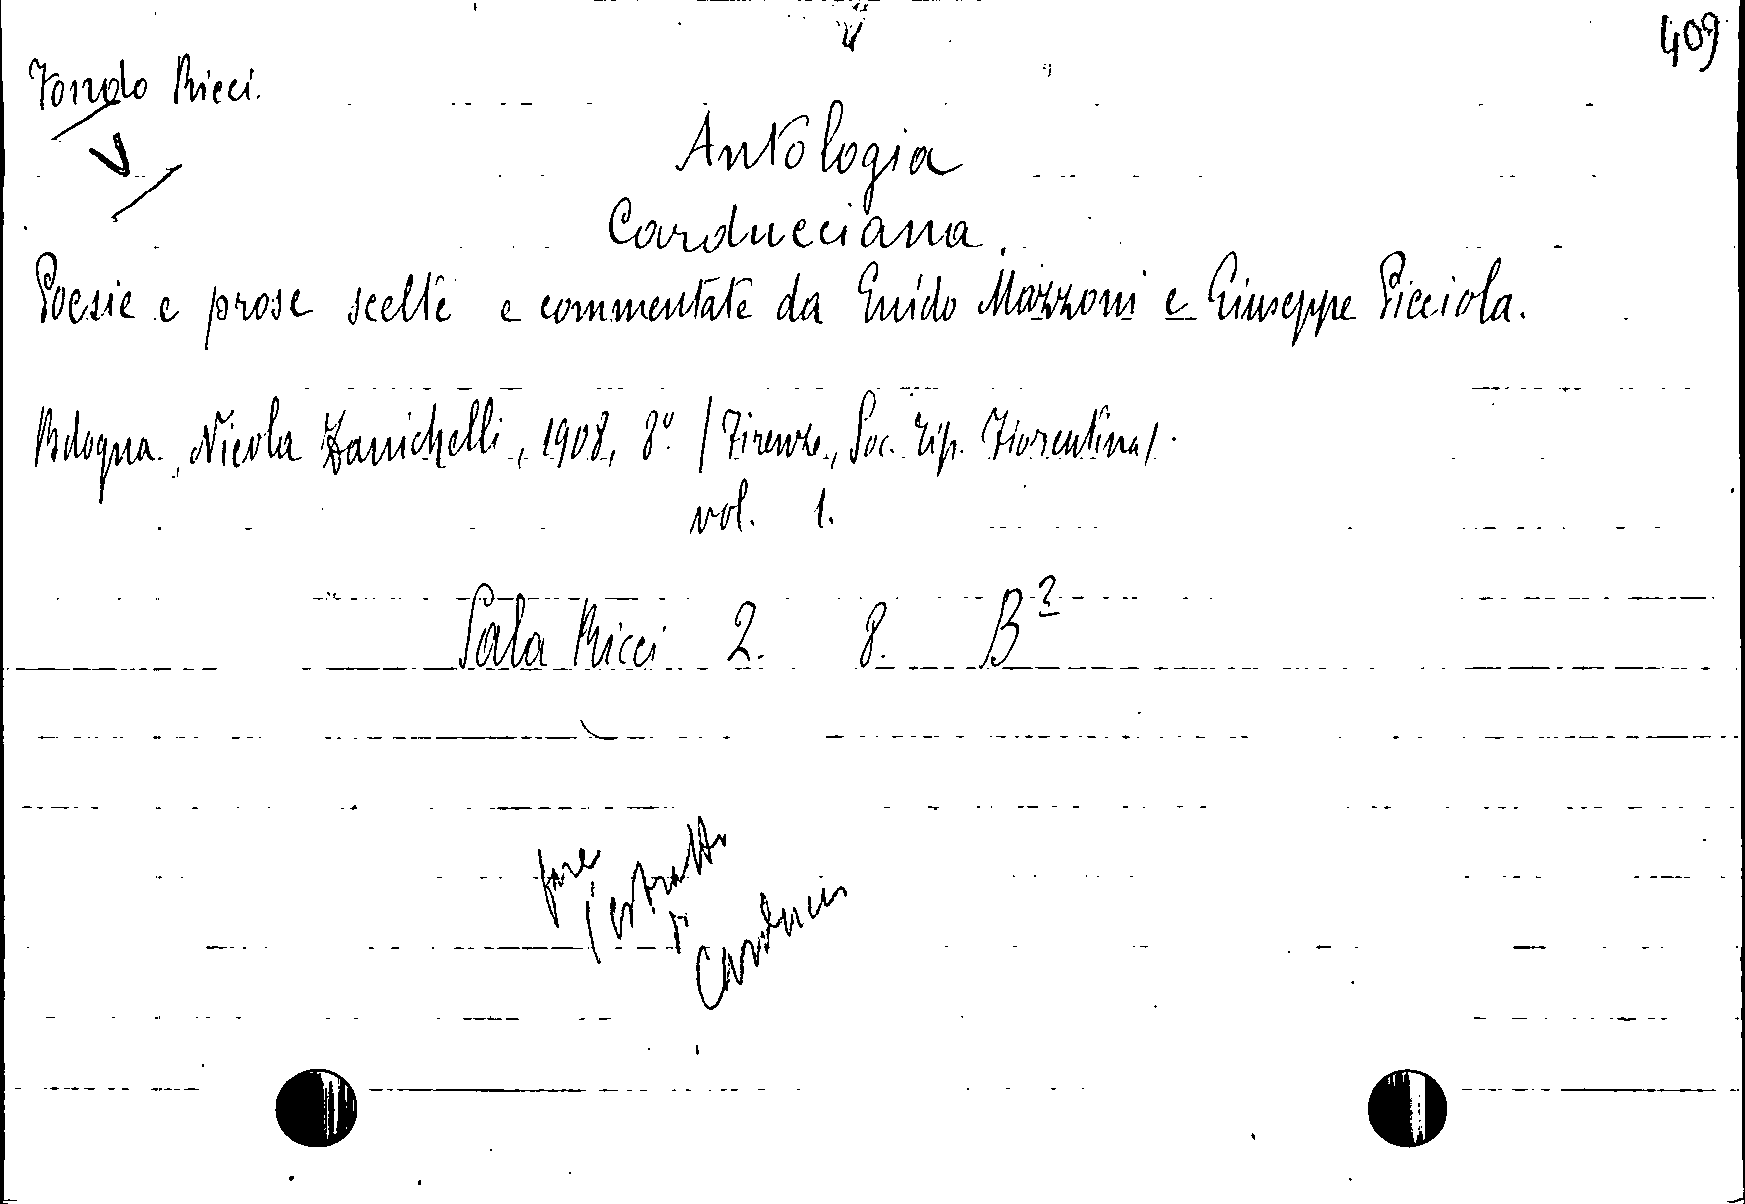 409
Fondo Ricci.
V
Antologia
Carducciana.
Poesie e prose scelte e commentate da Guido Mazzoni e Giuseppe Picciola.
Bologna, Nicola Zanichelli, 1908, 8° / Firenze, Soc. Tip. Fiorentina /.
vol. 1.
Sala Ricci 2. 8. B²
fare
l'estratto
di
Carducci